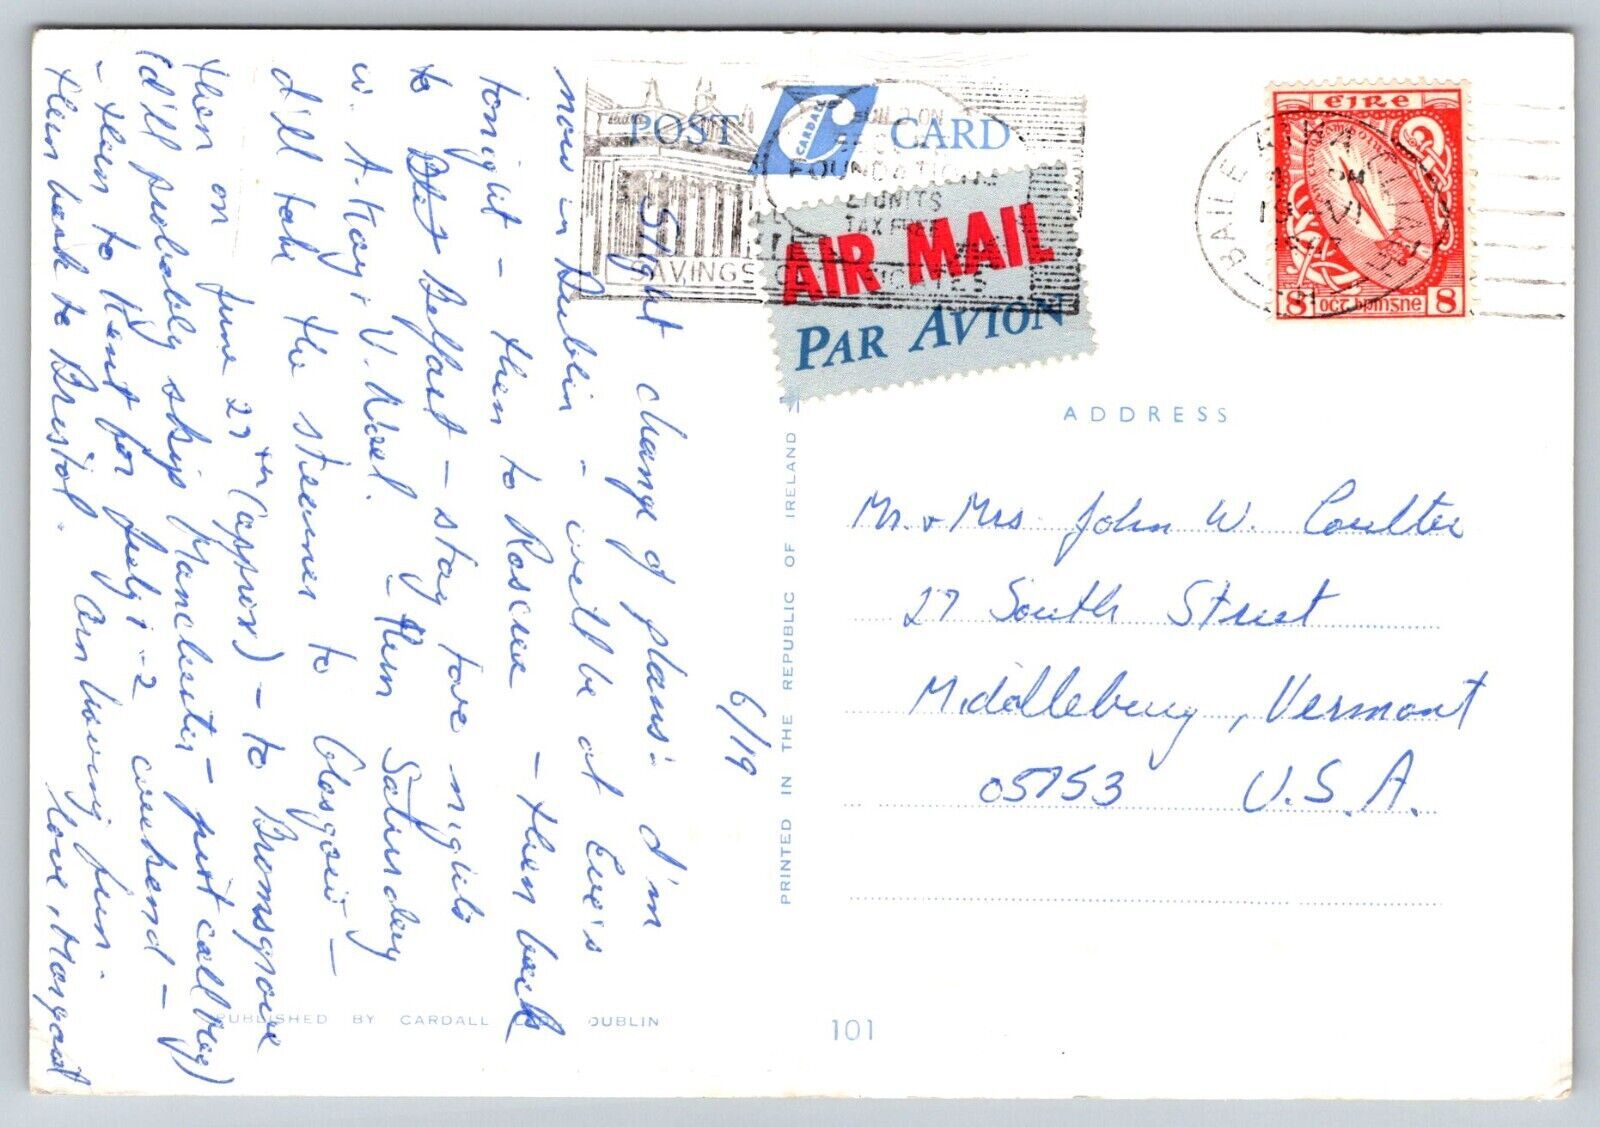 POST CARD
CARDALL
FOUNDATION
UNITS
TAX FREE
SAVINGS
AIR MAIL
PAR AVION
EIRE
8 OCT bpinsne 8
BAILE ÁTHA CLIATH
PM
ADDRESS
Mr. & Mrs John W. Coulter
27 South Street
Middlebury, Vermont
05753 U.S.A.
6/19
Slight change of plans: I'm
now in Dublin - will be at Eve's
tonight - then to Roscrea - then back
to Belfast - stay two nights
w. A-Kay & V. Noel. - then Saturday
I'll take the steamer to Glasgow -
then on June 27th (approx) - to Bromsgrove
(I'll probably skip Manchester - just call bag)
- then to Kent for July 1-2 weekend -
then back to Bristol. Am having fun.
Love, Margaret
PRINTED IN THE REPUBLIC OF IRELAND
PUBLISHED BY CARDALL LTD. DUBLIN
101